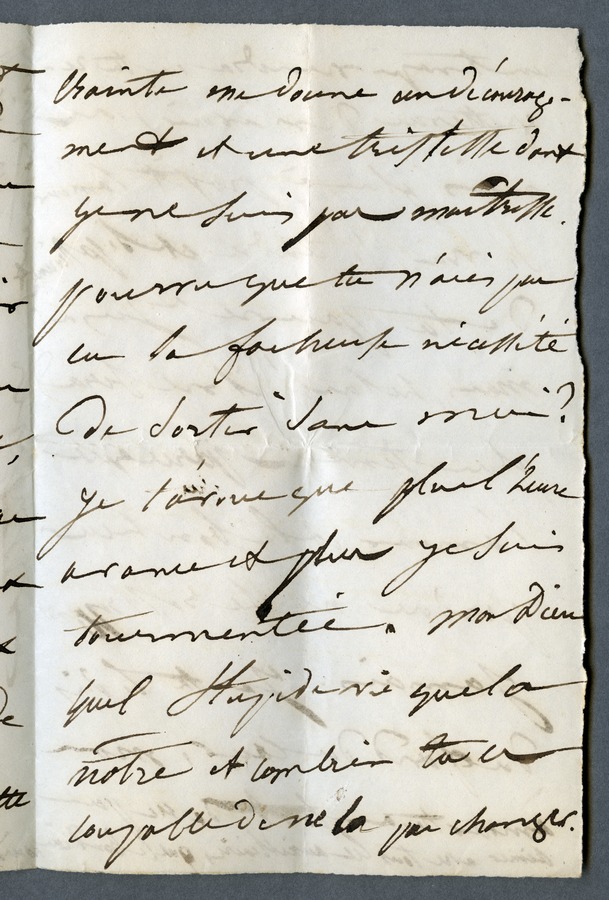 crainte me donne un décourage-
ment et une tristesse dont
je ne suis pas maitresse.
pourvu que tu n'aies pas
eu la facheuse nécessité
de sortir sans moi?
je t'avoue que plus l'heure
avance et plus je suis
tourmentée. mon Dieu
quel stupide vie que la
notre et combien tu es
coupable de ne la pas changer.